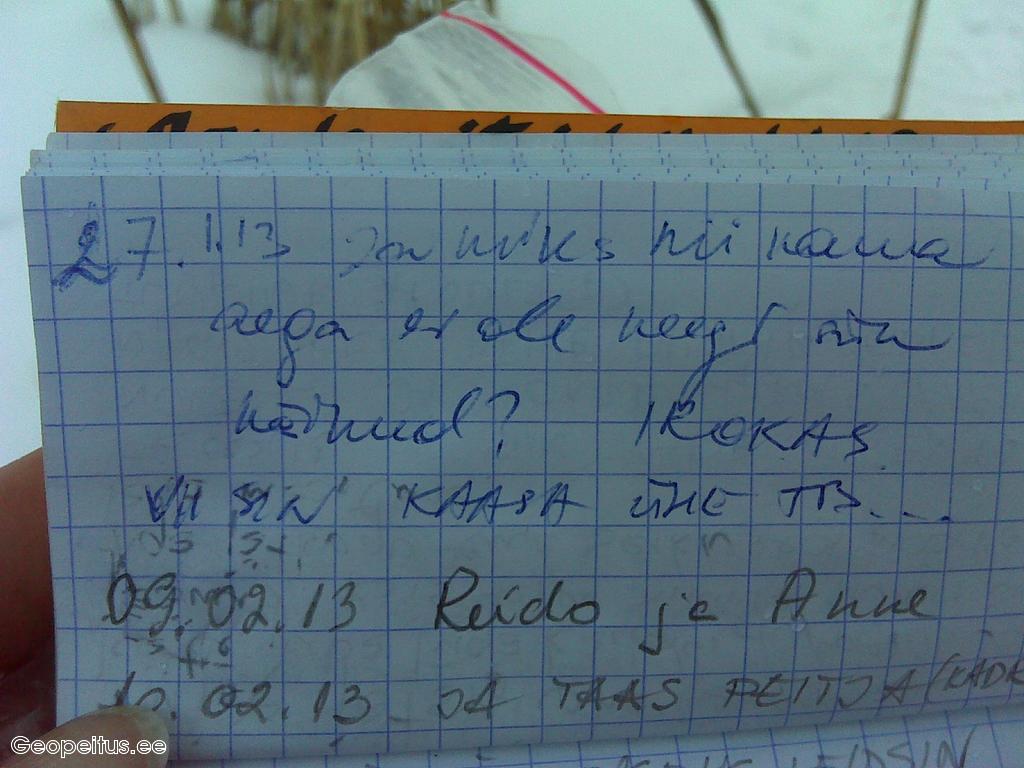 27.1.13 Ja miks nii kaua
aega ei ole keegi siin
käinud? IROKAS
VÕTSIN KAASA ÜHE TB...
09.02.13 Reido ja Anne
10.02.13 JA TAAS PEITJA (KADR
LEIDSIN
Geopeitus.ee